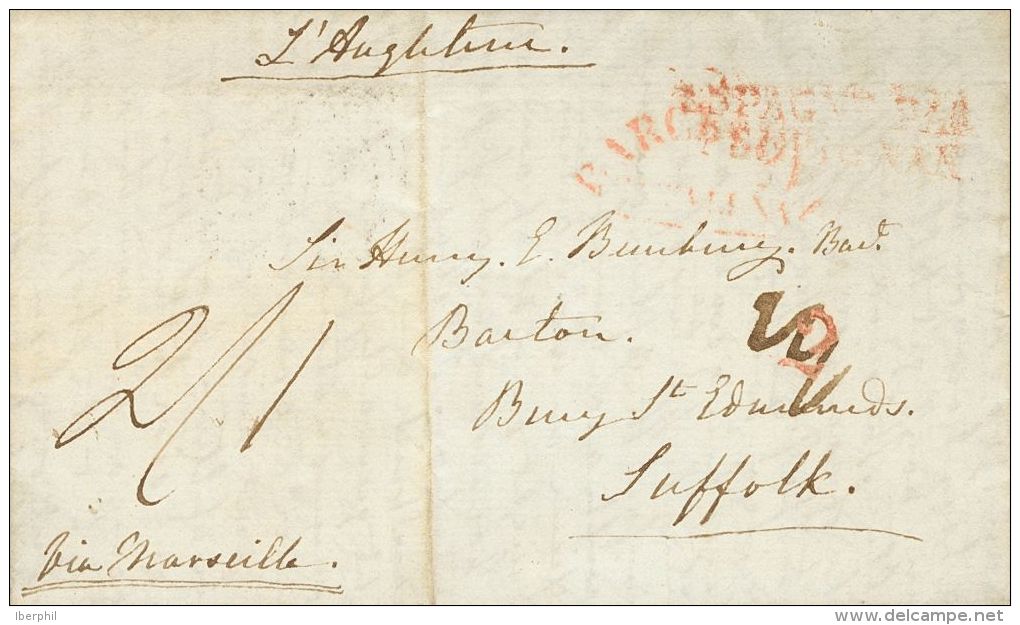 L'Angleterre.
ESPAGNE PAR
PERPIGNAN
BARCELONA
CATALUÑA
Sir Henry. E. Bunbury. Bart.
Barton.
2
2/1
Bury St Edmunds.
Suffolk.
Via Marseille.
Iberphil
delcampe.net